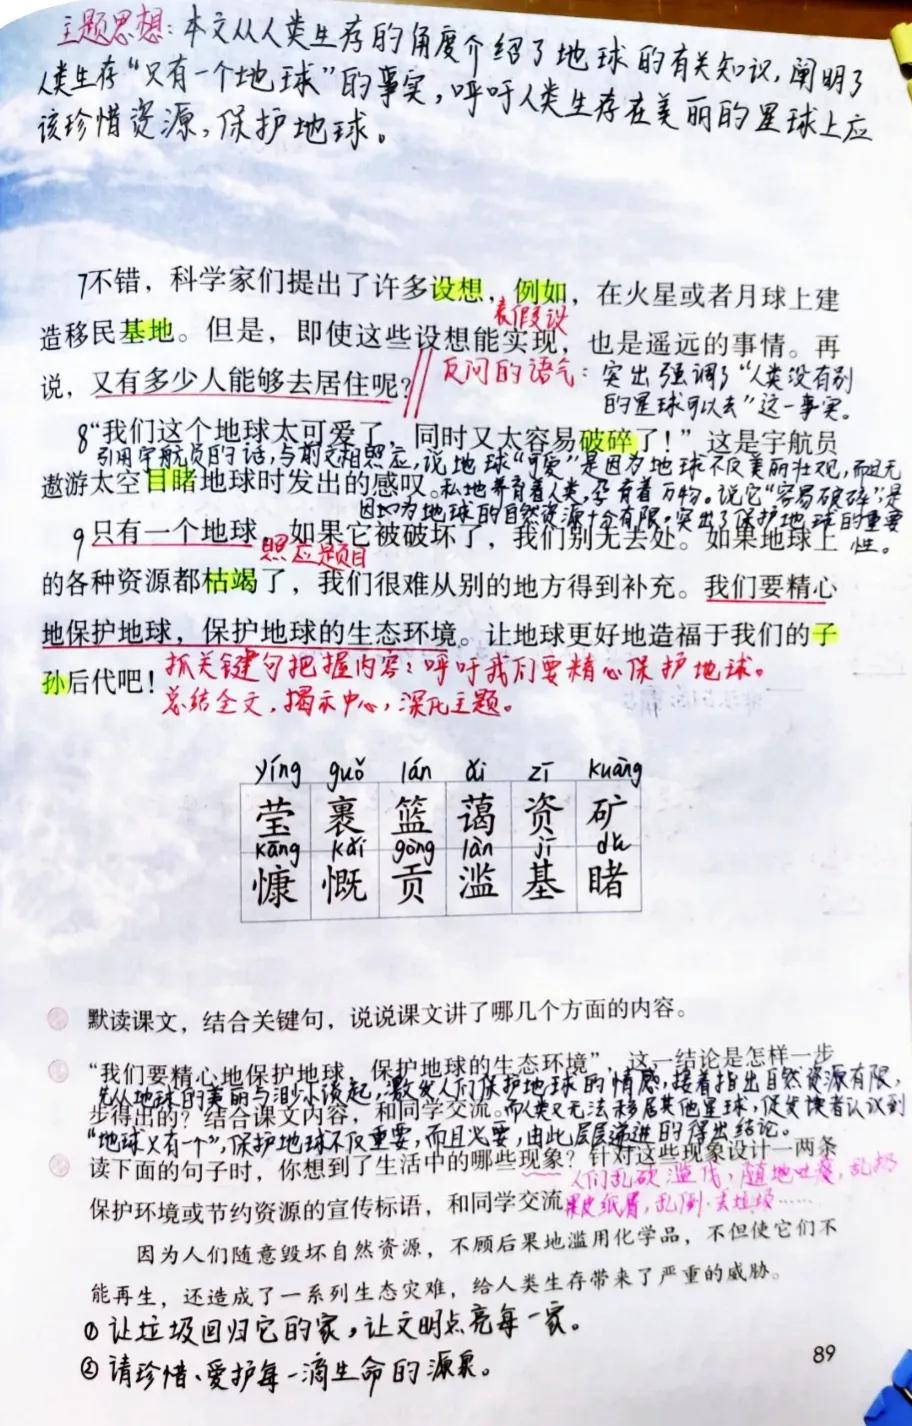 主题思想：本文从人类生存的角度介绍了地球的有关知识，阐明了
人类生存“只有一个地球”的事实，呼吁人类生存在美丽的星球上应
该珍惜资源，保护地球。
7不错，科学家们提出了许多设想，例如，在火星或者月球上建
表假设
造移民基地。但是，即使这些设想能实现，也是遥远的事情。再
说，又有多少人能够去居住呢？
反问的语气：突出强调了“人类没有别
的星球可以去”这一事实。
8“我们这个地球太可爱了，同时又太容易破碎了！”这是宇航员
引用宇航员的话，与前文相照应，说地球“可爱”是因为地球不仅美丽壮观，而且无
遨游太空目睹地球时发出的感叹。
私地养育着人类，孕育着万物。说它“容易破碎”是
因为地球的自然资源十分有限。突出了保护地球的重要
性。
9只有一个地球，如果它被破坏了，我们别无去处。如果地球上
照应题目
的各种资源都枯竭了，我们很难从别的地方得到补充。我们要精心
地保护地球，保护地球的生态环境。让地球更好地造福于我们的子
孙后代吧！
抓关键句把握内容：呼吁我们要精心保护地球。
总结全文，揭示中心，深化主题。
yíng guǒ lán ǎi zī kuàng
莹 裹 篮 蔼 资 矿
kāng kǎi gòng làn jī dǔ
慷 慨 贡 滥 基 睹
默读课文，结合关键句，说说课文讲了哪几个方面的内容。
“我们要精心地保护地球，保护地球的生态环境”，这一结论是怎样一步
先从地球的美丽与渺小谈起，激发人们保护地球的情感，接着指出自然资源有限，
步得出的？结合课文内容，和同学交流。
而人类又无法移居其他星球，促使读者认识到
“地球只有一个”，保护地球不仅重要，而且必要，由此层层递进的得出结论。
读下面的句子时，你想到了生活中的哪些现象？针对这些现象设计一两条
人们乱砍滥伐，随地吐痰，乱扔
保护环境或节约资源的宣传标语，和同学交流。
果皮纸屑，乱倒垃圾……
因为人们随意毁坏自然资源，不顾后果地滥用化学品，不但使它们不
能再生，还造成了一系列生态灾难，给人类生存带来了严重的威胁。
① 让垃圾回归它的家，让文明点亮每一家。
② 请珍惜、爱护每一滴生命的源泉。
89